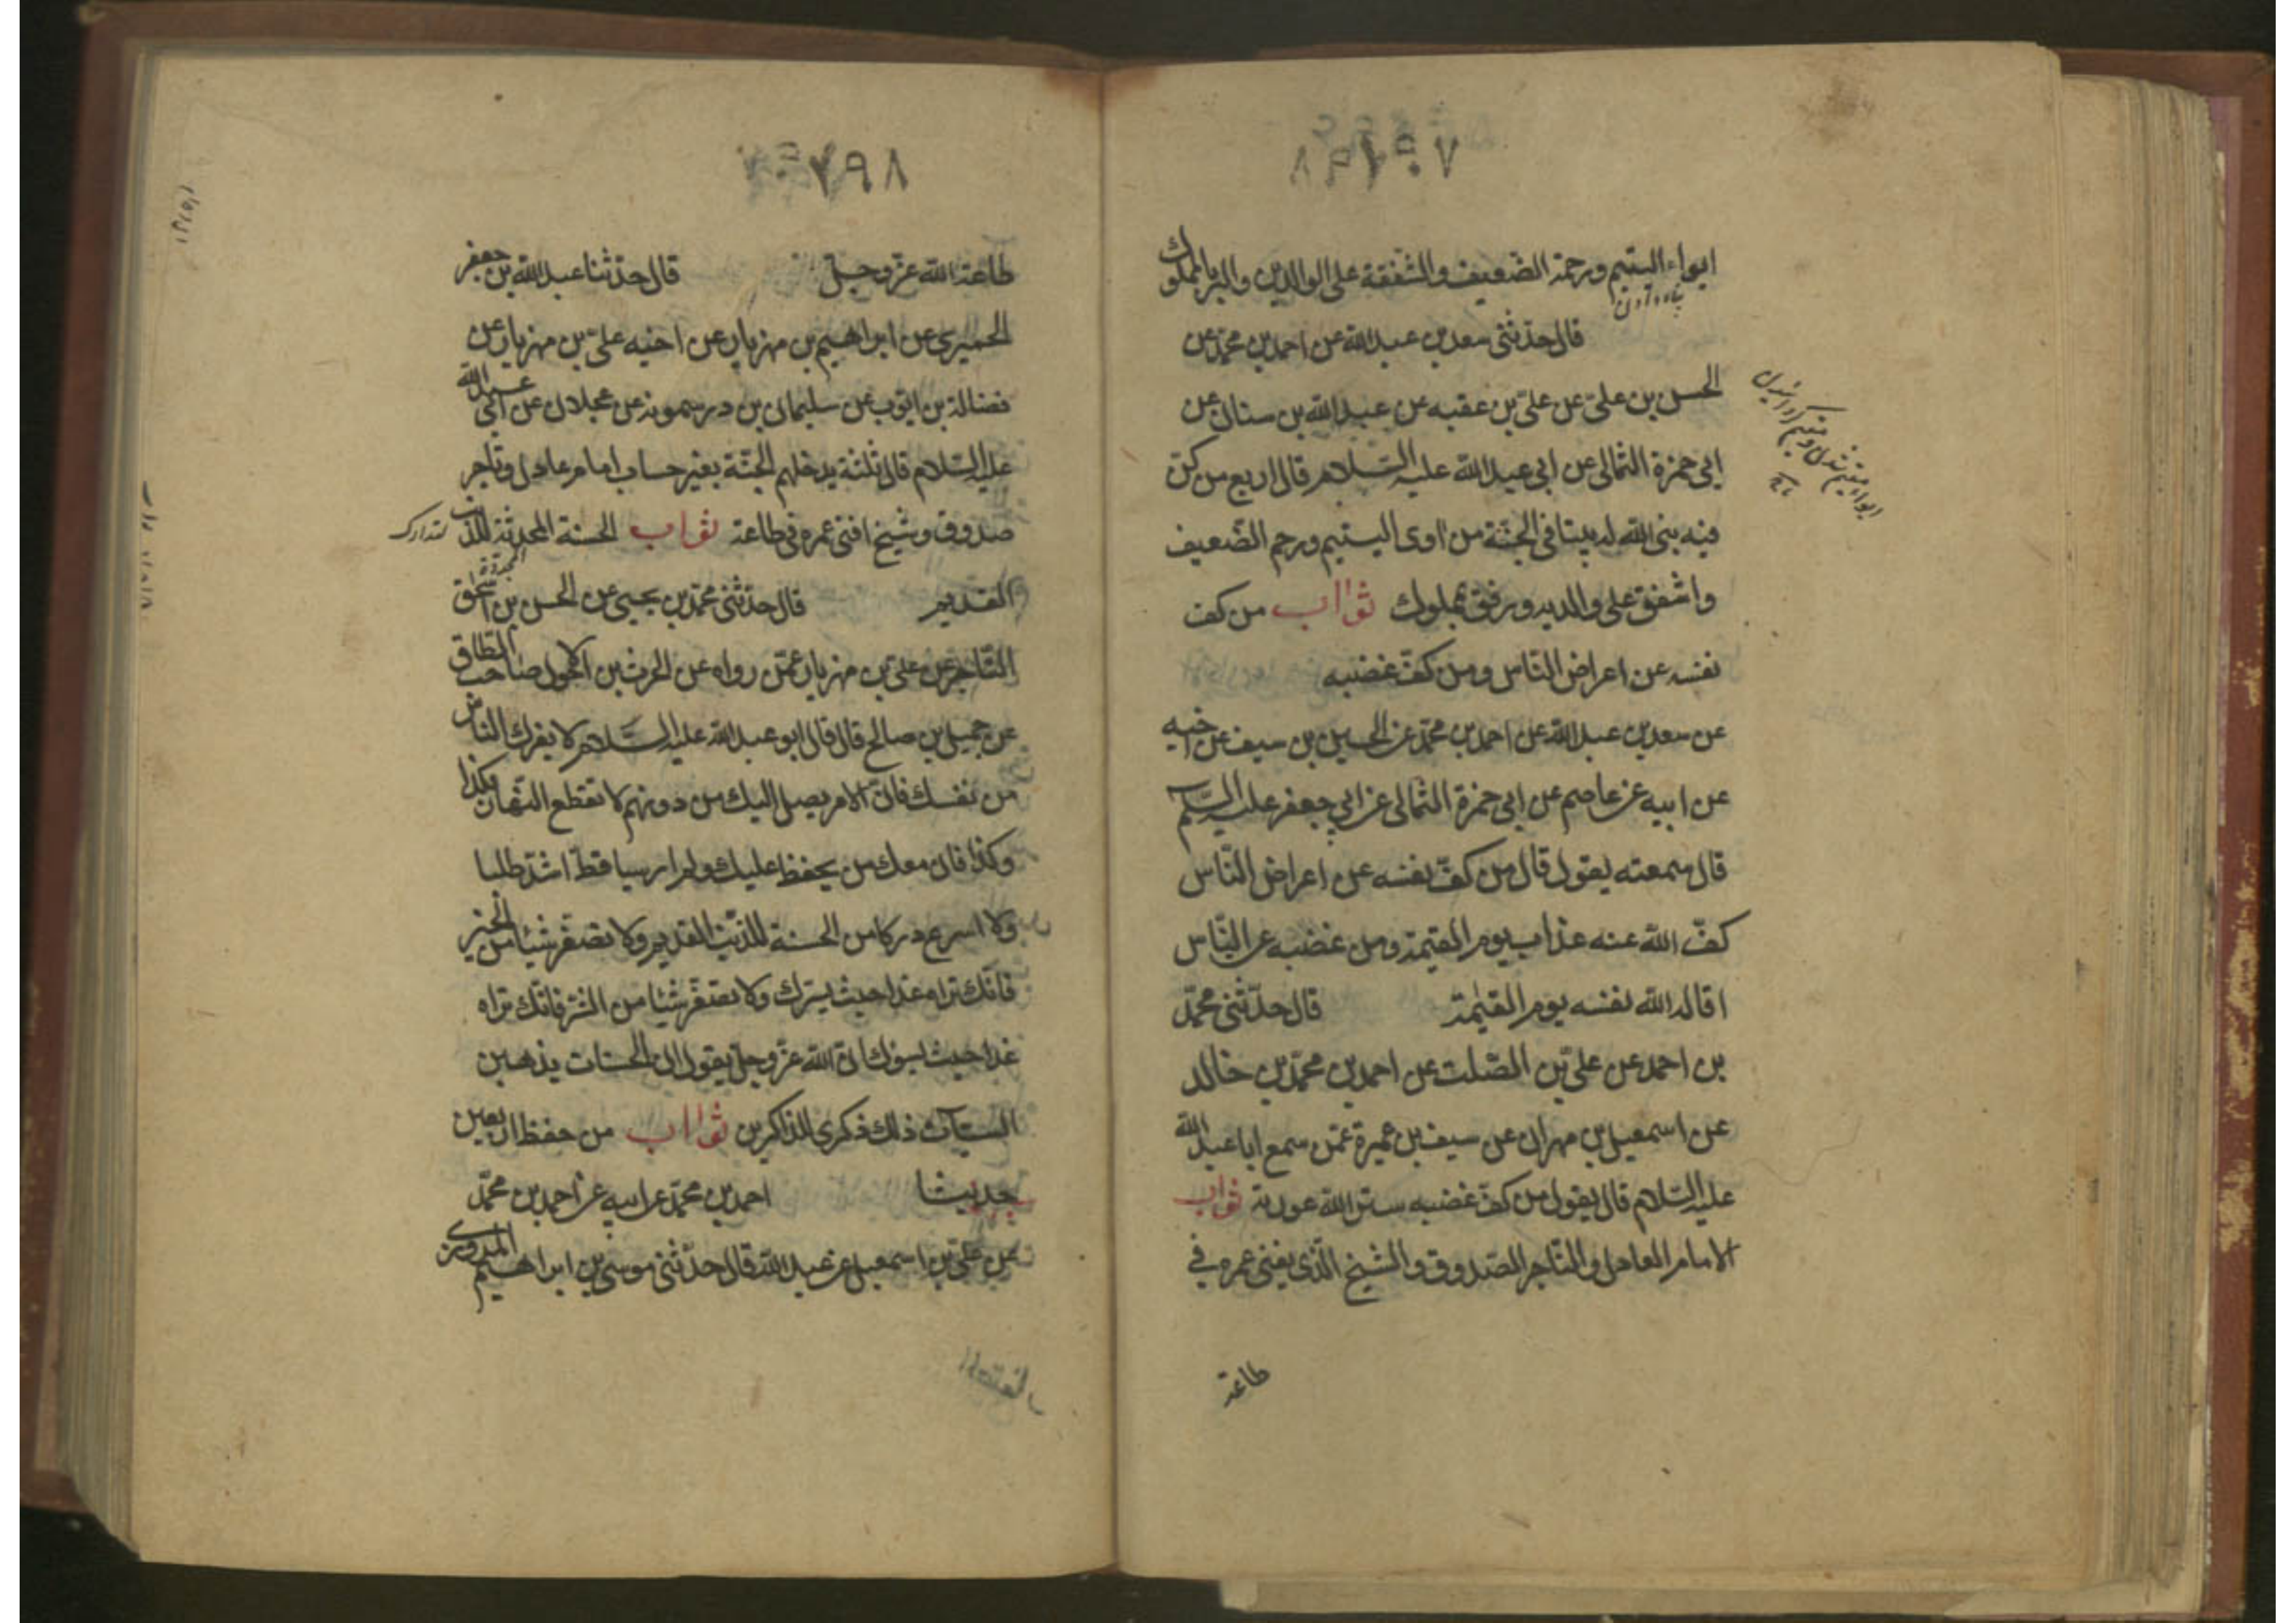 ايواء اليتيم ورحمة الضعيف والشفقة على الوالدين والبر بالمملوك
پناه دادن
قال حدثنى سعد بن عبد الله عن احمد بن محمد عن
الحسن بن علىّ عن علىّ بن عقبه عن عبد الله بن سنان عن
ابى حمزة الثمالى عن ابى عبد الله عليه السّلام قال اربع من كنّ
فيه بنى الله له بيتا فى الجنّة من اوى اليتيم ورحم الضّعيف
واشفق على والديه ورفق بمملوك ثواب من كف
نفسه عن اعراض النّاس ومن كفّ غضبه
عن سعد بن عبد الله عن احمد بن محمّد عن الحسين بن سيف عن اخيه
عن ابيه عن عاصم عن ابى حمزة الثمالى عن ابى جعفر عليه السّلم
قال سمعته يقول قال من كفّ نفسه عن اعراض النّاس
كفّ الله عنه عذاب يوم القيمة ومن غضبه عن النّاس
اقاله الله نفسه يوم القيٰمة قال حدّثنى محمّد
بن احمد عن علىّ بن الصّلت عن احمد بن محمّد بن خالد
عن اسمعيل بن مهران عن سيف بن عميرة عمّن سمع ابا عبد الله
عليه السّلام قال يقول من كفّ غضبه ستر الله عورته ثواب
الامام العادل والتّاجر الصّدوق والشيخ الّذى يفنى عمره فى
طاعة
٧٩٨
طاعة الله عزّ وجلّ قال حدّثنا عبد الله بن جعفر
الحميرى عن ابراهيم بن مهزيار عن اخيه علىّ بن مهزيار عن
فضالة بن ايّوب عن سليمان بن درستويه عن عجلان عن ابى عبد الله
عليه السّلام قال ثلثة يدخلهم الجنّة بغير حساب امام عادل وتاجر
صدوق وشيخ افنى عمره فى طاعة ثواب الحسنة المحدثة للذنب
القديم قال حدّثنى محمّد بن يحيى عن الحسن بن اسحق
التّاجر عن علىّ بن مهزيار عمّن رواه عن الحرث بن الاحول صاحب الطاق
عن جميل بن صالح قال قال ابو عبد الله عليه السّلام لا يغرك النّاس
من نفسك فانّ الامر يصل اليك من دونهم لا تقطع النّهار بكذا
وكذا فان معك من يحفظ عليك ولم ار شيا قطّ اشدّ طلبا
ولا اسرع دركا من الحسنة للذّنب القديم ولا تصغّر شيئا من الخير
فانّك تراه غدا حيث يسرّك ولا تصغّر شيئا من الشرّ فانّك تراه
غدا حيث يسوك انّ الله عزّ وجلّ يقول ان الحسنات يذهبن
السيّآت ذلك ذكرى للذاكرين ثواب من حفظ اربعين
حديثا احمد بن محمّد عن ابيه عن احمد بن محمّد
عن علىّ بن اسمعيل عن عبيد الله قال حدّثنى موسى بن ابراهيم المروزى